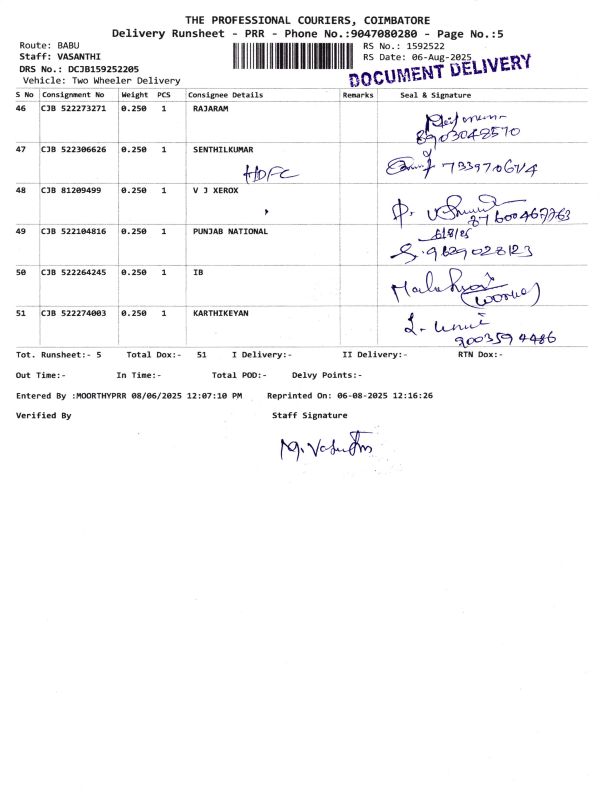 THE PROFESSIONAL COURIERS, COIMBATORE
Delivery Runsheet - PRR - Phone No.:9047080280 - Page No.:5
Route: BABU
RS No.: 1592522
Staff: VASANTHI
RS Date: 06-Aug-2025
DRS No.: DCJB159252205
DOCUMENT DELIVERY
Vehicle: Two Wheeler Delivery
S No Consignment No Weight PCS Consignee Details Remarks Seal & Signature
46 CJB 522273271 0.250 1 RAJARAM
8903048570
47 CJB 522306626 0.250 1 SENTHILKUMAR
HDFC
48 CJB 81209499 0.250 1 V J XEROX
49 CJB 522104816 0.250 1 PUNJAB NATIONAL
6/8/25
S. 9629028123
50 CJB 522264245 0.250 1 IB
51 CJB 522274003 0.250 1 KARTHIKEYAN
9003594486
Tot. Runsheet:- 5 Total Dox:- 51 I Delivery:- II Delivery:- RTN Dox:-
Out Time:- In Time:- Total POD:- Delvy Points:-
Entered By :MOORTHYPRR 08/06/2025 12:07:10 PM Reprinted On: 06-08-2025 12:16:26
Verified By Staff Signature